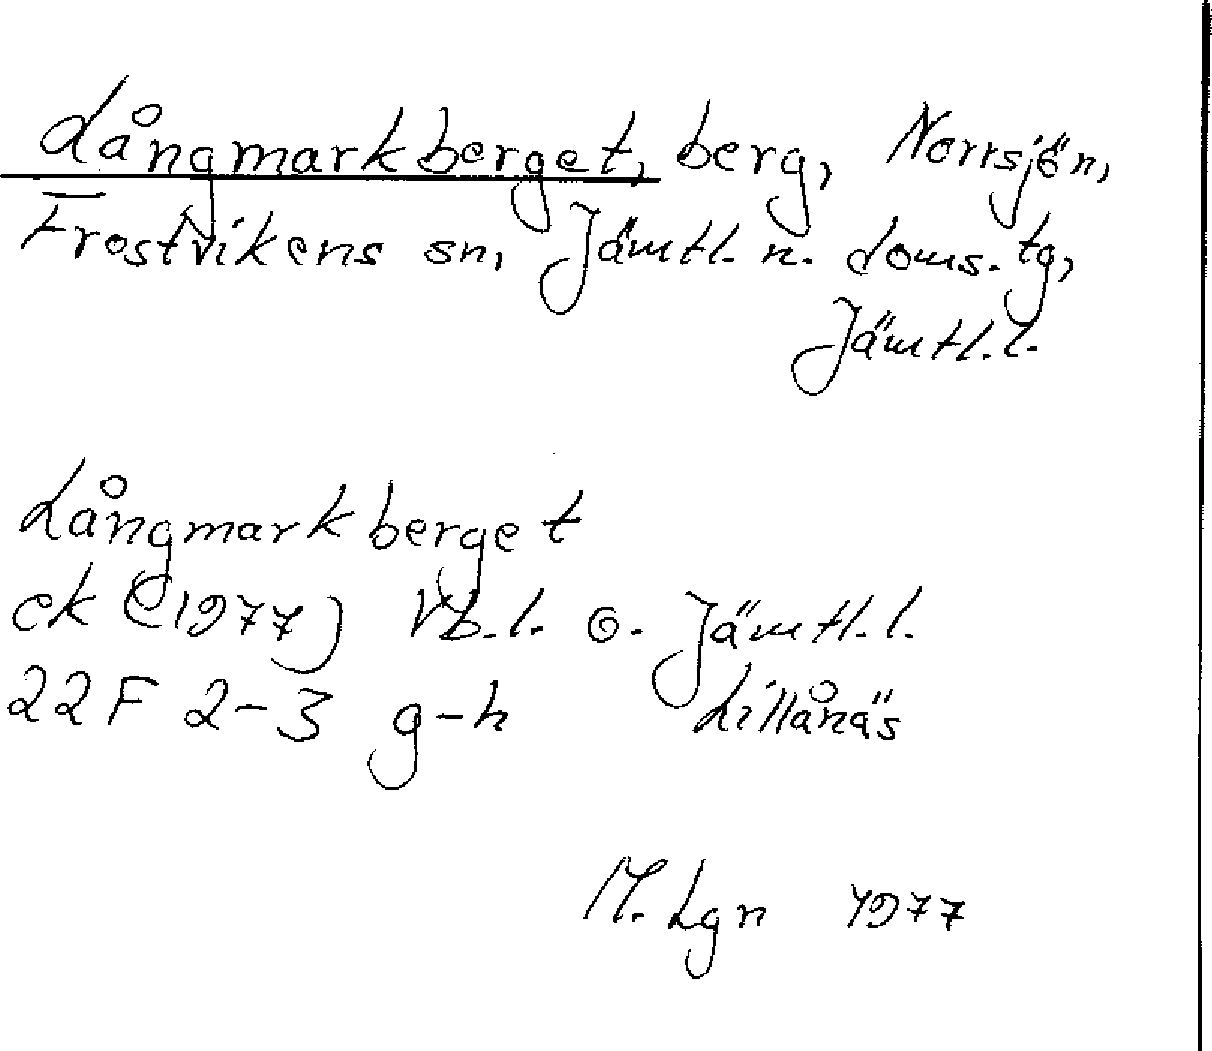 Långmarkberget, berg, Norrsjön,
Frostvikens sn, Jämtl. n. doms. tg,
Jämtl. l.
Långmarkberget
ek (1977) Vb. l. o. Jämtl. l.
22F 2-3 g-h Lillånäs
M. Lgn 1977